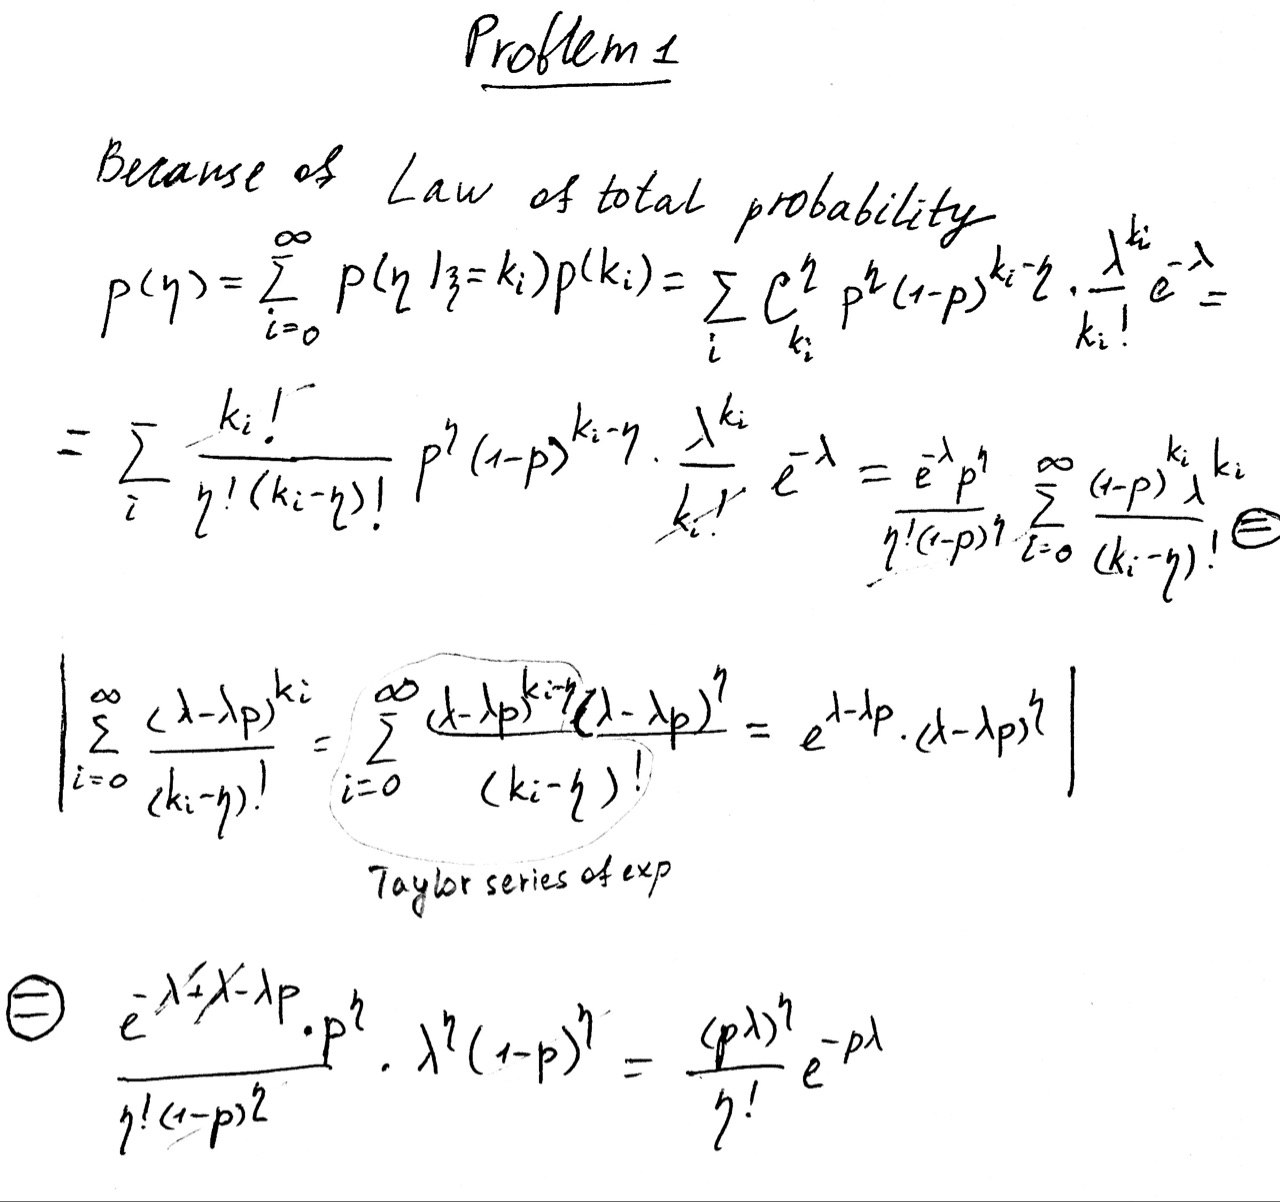 Problem 1
Because of Law of total probability
p(η) = ∑_{i=0}^{∞} p(η | ξ = k_i) p(k_i) = ∑_i C_{k_i}^{η} p^η (1-p)^{k_i-η} · \frac{λ^{k_i}}{k_i!} e^{-λ} =
= ∑_i \frac{k_i!}{η!(k_i-η)!} p^η (1-p)^{k_i-η} · \frac{λ^{k_i}}{k_i!} e^{-λ} = \frac{e^{-λ} p^η}{η!(1-p)^η} ∑_{i=0}^{∞} \frac{(1-p)^{k_i} λ^{k_i}}{(k_i-η)!} ⊜
| ∑_{i=0}^{∞} \frac{(λ-λp)^{k_i}}{(k_i-η)!} = ∑_{i=0}^{∞} \frac{(λ-λp)^{k_i-η} (λ-λp)^η}{(k_i-η)!} = e^{λ-λp} · (λ-λp)^η |
Taylor series of exp
⊜ \frac{e^{-λ+λ-λp} · p^η}{η!(1-p)^η} · λ^η (1-p)^η = \frac{(pλ)^η}{η!} e^{-pλ}